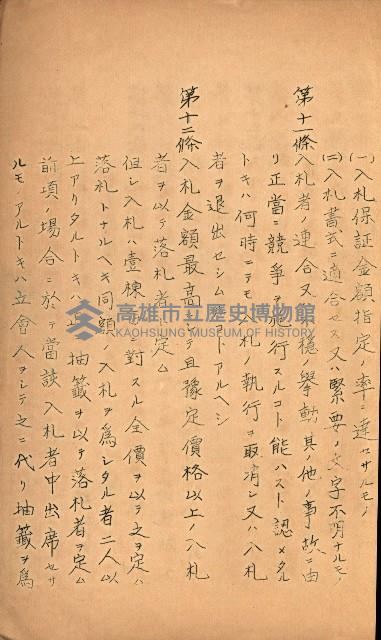 (一)入札保証金額指定ノ率ニ達セサルモノ
(二)入札書式ニ適合セス又ハ緊要ノ文字不明ナルモノ
第十一條 入札者ノ連合又ハ不穩擧動其ノ他ノ事故ニ由
リ正當ニ競爭ヲ施行スルコト能ハスト認メタル
トキハ何時ニテモ入札ノ執行ヲ取消シ又ハ入札
者ヲ退出セシムルコトアルヘシ
第十二條 入札金額最高ニシテ且豫定價格以上ノ入札
者ヲ以テ落札者ト定ム
但シ入札ハ壹棟ニ對スル全價ヲ以テ之ヲ定ム
落札トナルヘキ同額ノ入札ヲ為シタル者二人以
上アリタルトキハ抽籤ヲ以テ落札者ヲ定ム
前項ノ場合ニ於テ當該入札者中出席セサ
ルモノアルトキハ立會人ヲシテ之ニ代リ抽籤ヲ為
高雄市立歷史博物館
KAOHSIUNG MUSEUM OF HISTORY